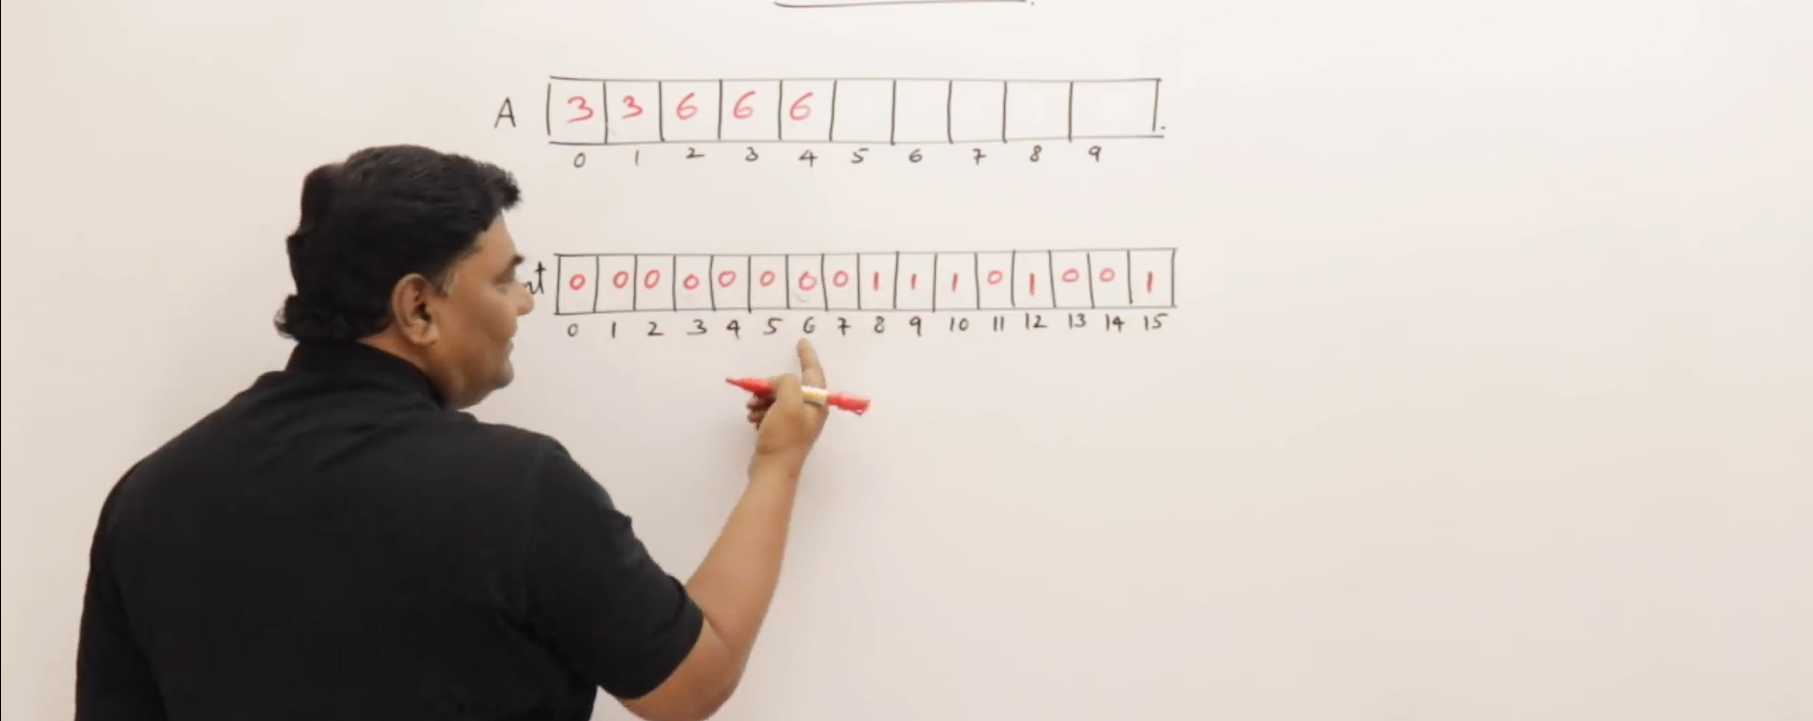 A 3 3 6 6 6
0 1 2 3 4 5 6 7 8 9
0 0 0 0 0 0 0 0 1 1 1 0 1 0 0 1
0 1 2 3 4 5 6 7 8 9 10 11 12 13 14 15